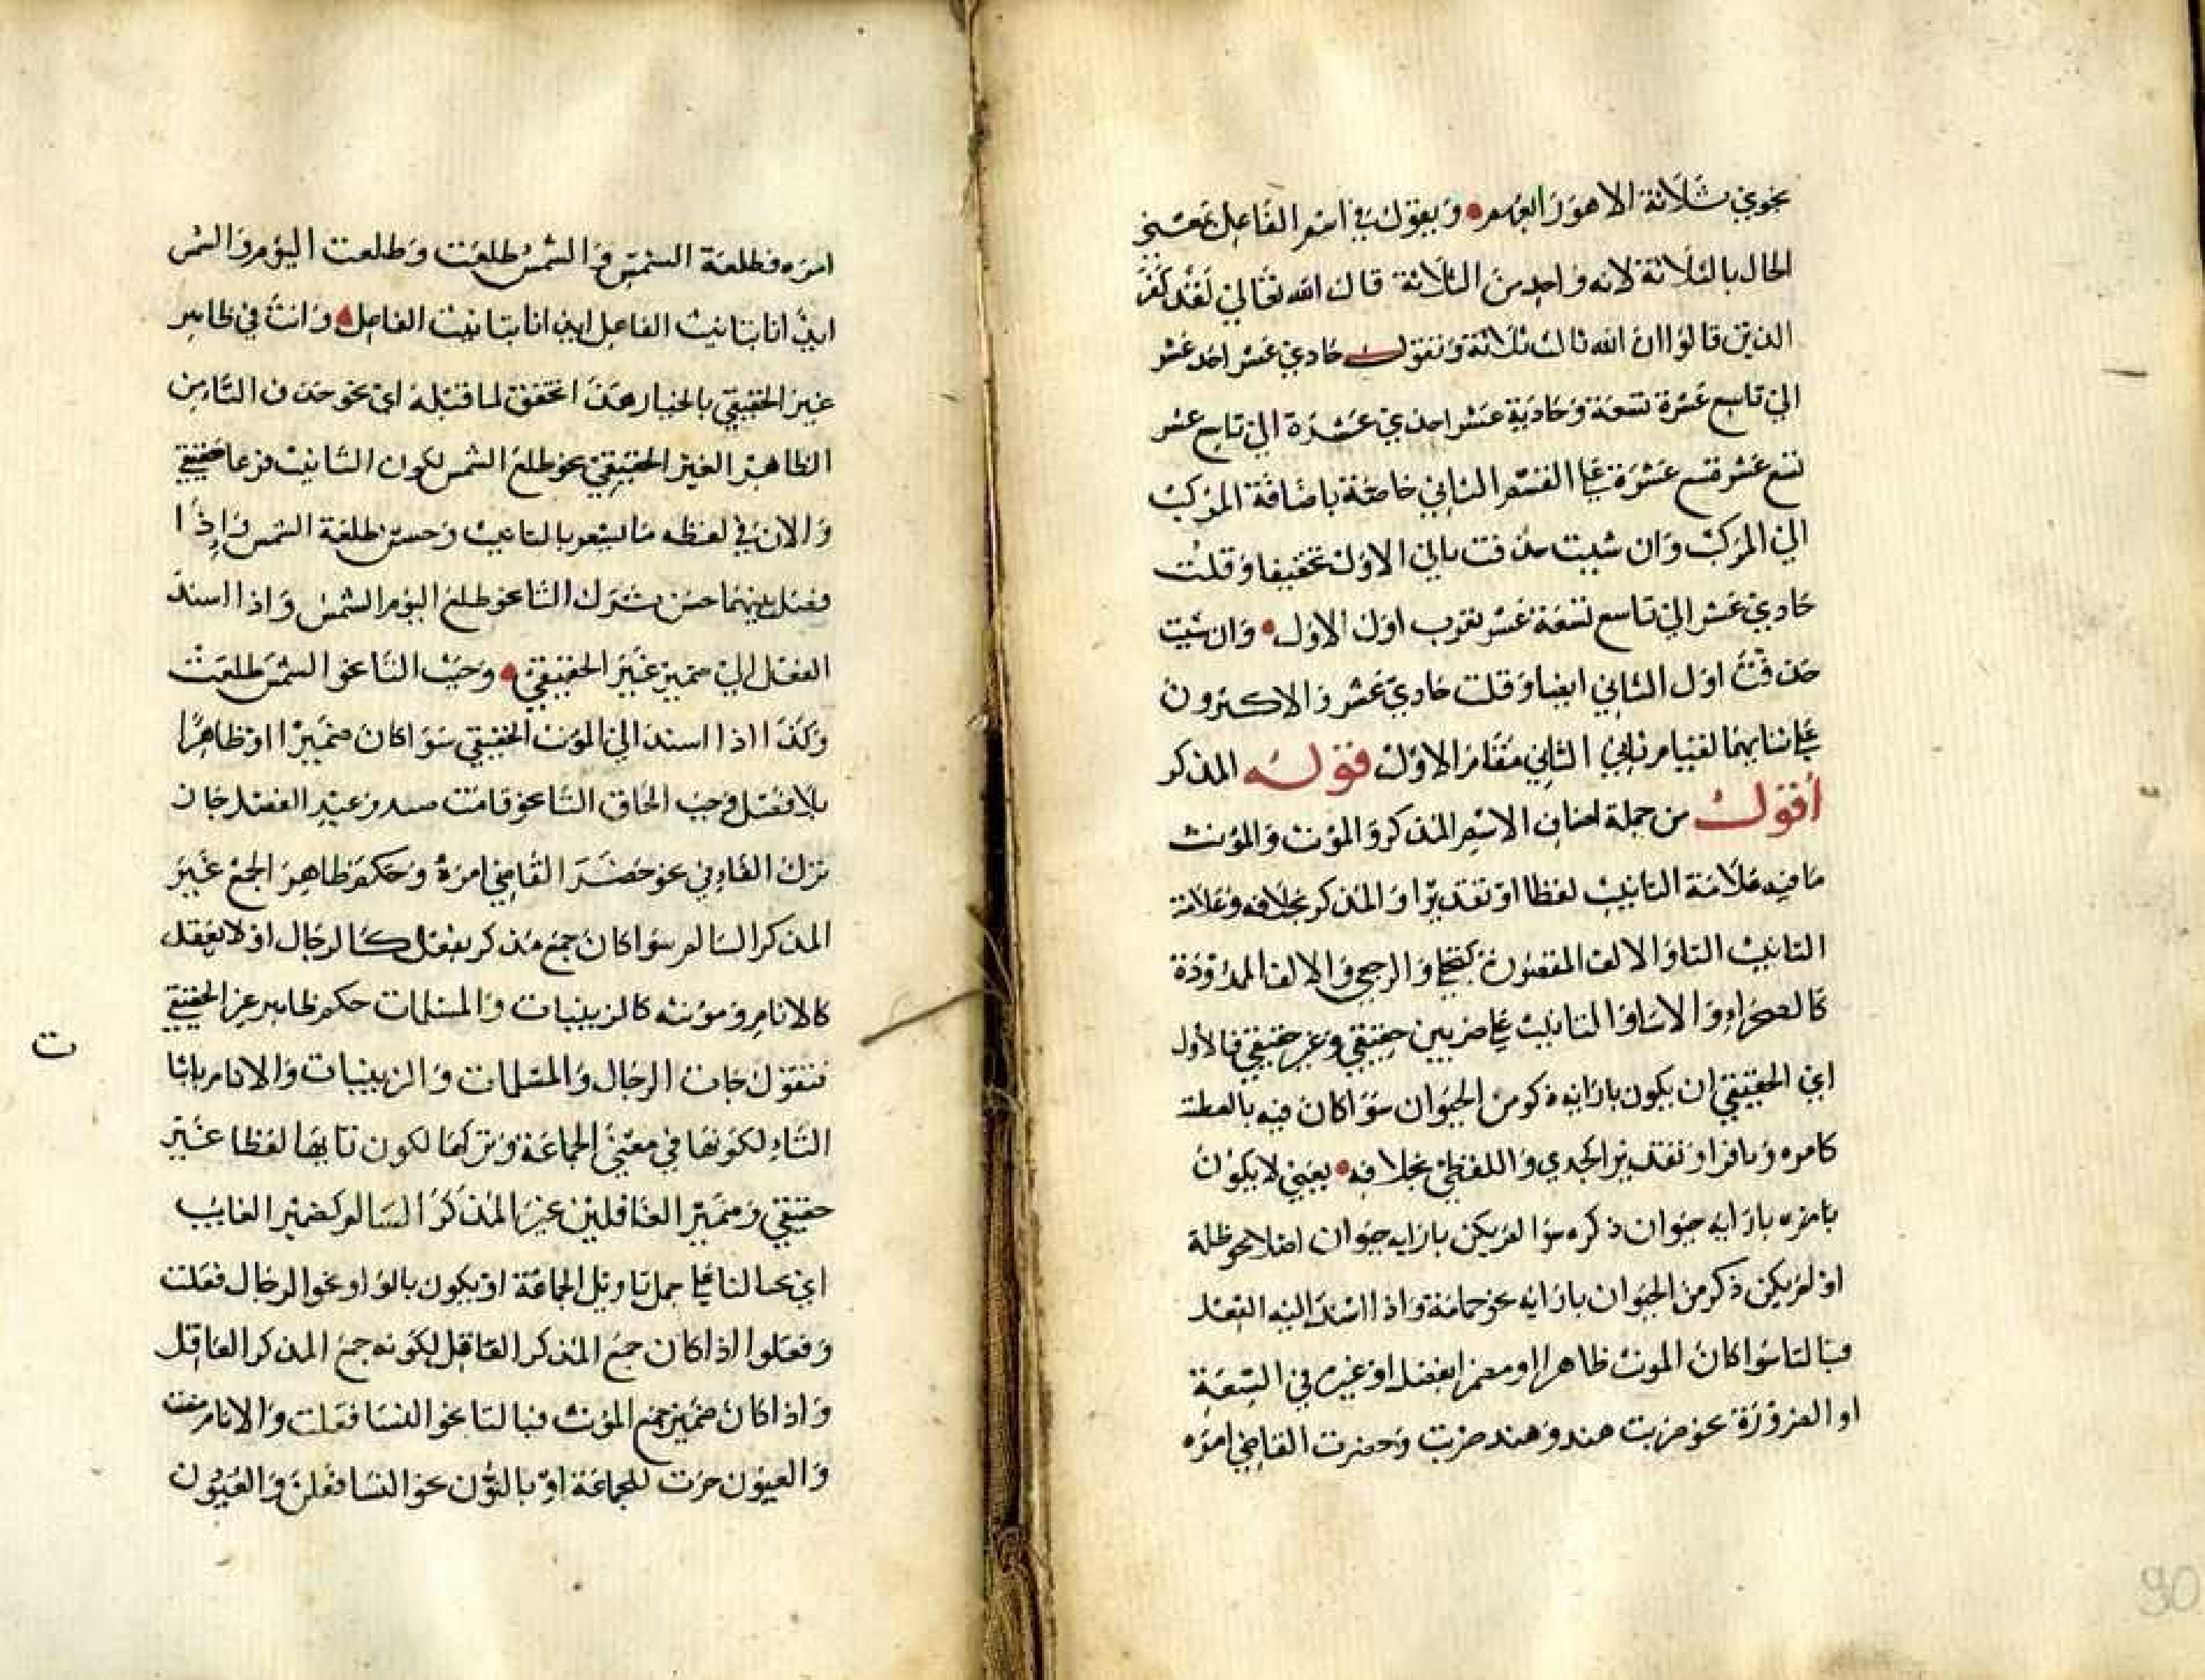 نجوي ثلاثة الا هو رابعهم ويقول في اسم الفاعل بمعني
الحال بالثلاثة لانه واحد من الثلاثة قال الله تعالي لقد كفر
الذين قالوا ان الله ثالث ثلاثة وتقول حادي عشر احد عشر
الي تاسع عشرة تسعة وحادية عشر احدي عشرة الي تاسع عشر
تسع عشر عشرة علي القسم الثاني خاصة باضافة المركب
الي المركب وان شيت حذفت ثاني الاول تخفيفا وقلت
حادي عشر الي تاسع تسعة عشر بقرب اول الاول وان شيت
حذفت اول الثاني ايضا وقلت حادي عشر والاكثرون
علي بنايهما لقيام ثاني الثاني مقام الاول قوله المذكر
أقول من جملة اصناف الاسم المذكر والمؤنث والمؤنث
ما فيه علامة التانيث لفظا او تقديرا والمذكر بخلافه وعلامة
التانيث التا والالف المقصورة والالف الممدودة
كالصحراء والتانيث علي ضربين حقيقي وغير حقيقي فالاول
اي الحقيقي ان يكون بازايه ذكر من الحيوان سوا كان فيه بالعلامة
كامره او تقديرا كجدي واللفظي بخلافه يعني لا يكون
بامره بازايه حيوان ذكره سوا لم يكن بازايه حيوان اصلا نحو ظلمة
او لم يكن ذكر من الحيوان بازايه نحو حمامة واذا اسند اليه الفعل
فبالتا سوا كان المونث ظاهرا او مضمرا بفصل او غيره في السعة
او الضرورة نحو ضربت هند وهند ضربت وحضرت القاضي امره
امره فطلعة الشمس والشمس طلعت وطلعت اليوم والشمس
اي انا بتانيث الفاعل اي انا بتانيث الفاعل وانت في ظاهر
غير الحقيقي بالخيار هذا تحقق لما قبله اي نحو حذف التا من
الظاهر الغير الحقيقي نحو طلع الشمس لكون التانيث فرعا حقيقي
والان في لفظه ما يشعر بالتانيث وحسن طلعة الشمس واذا
فصل بينهما حسن ترك التا نحو طلع اليوم الشمس واذا اسند
الفعل الي ضمير غير الحقيقي وجب التا نحو الشمس طلعت
وكذا اذا اسند الي المونث الحقيقي سوا كان ضميرا او ظاهرا
بلا فصل وجب الحاق التا نحو قامت هند وعند الفصل جاز
ترك التا في نحو حضر القاضي امرة وحكم ظاهر الجمع غير
المذكر السالم سوا كان جمع مذكر يعقل كالرجال او لا يعقل
كالانام ومؤنثه كالزينبات والمسلمات حكم ظاهر غير الحقيقي
فتقول جات الرجال والمسلمات والزينبات والانام باثبا
ت
التاء لكونها في معني الجماعة وتركها لكون تانيثها لفظا غير
حقيقي وضمير العاقلين غير المذكر السالم كضمير الغايب
اي بالتا علي جمل تاويل الجماعة او يكون بالواو نحو الرجال فعلت
وفعلوا اذا كان جمع المذكر العاقل لكونه جمع المذكر العاقل
واذا كان ضمير جمع المؤنث فبالتا نحو النسا فعلت والانام
والعيون جرت للجماعة او بالنون نحو النسا فعلن والعيون